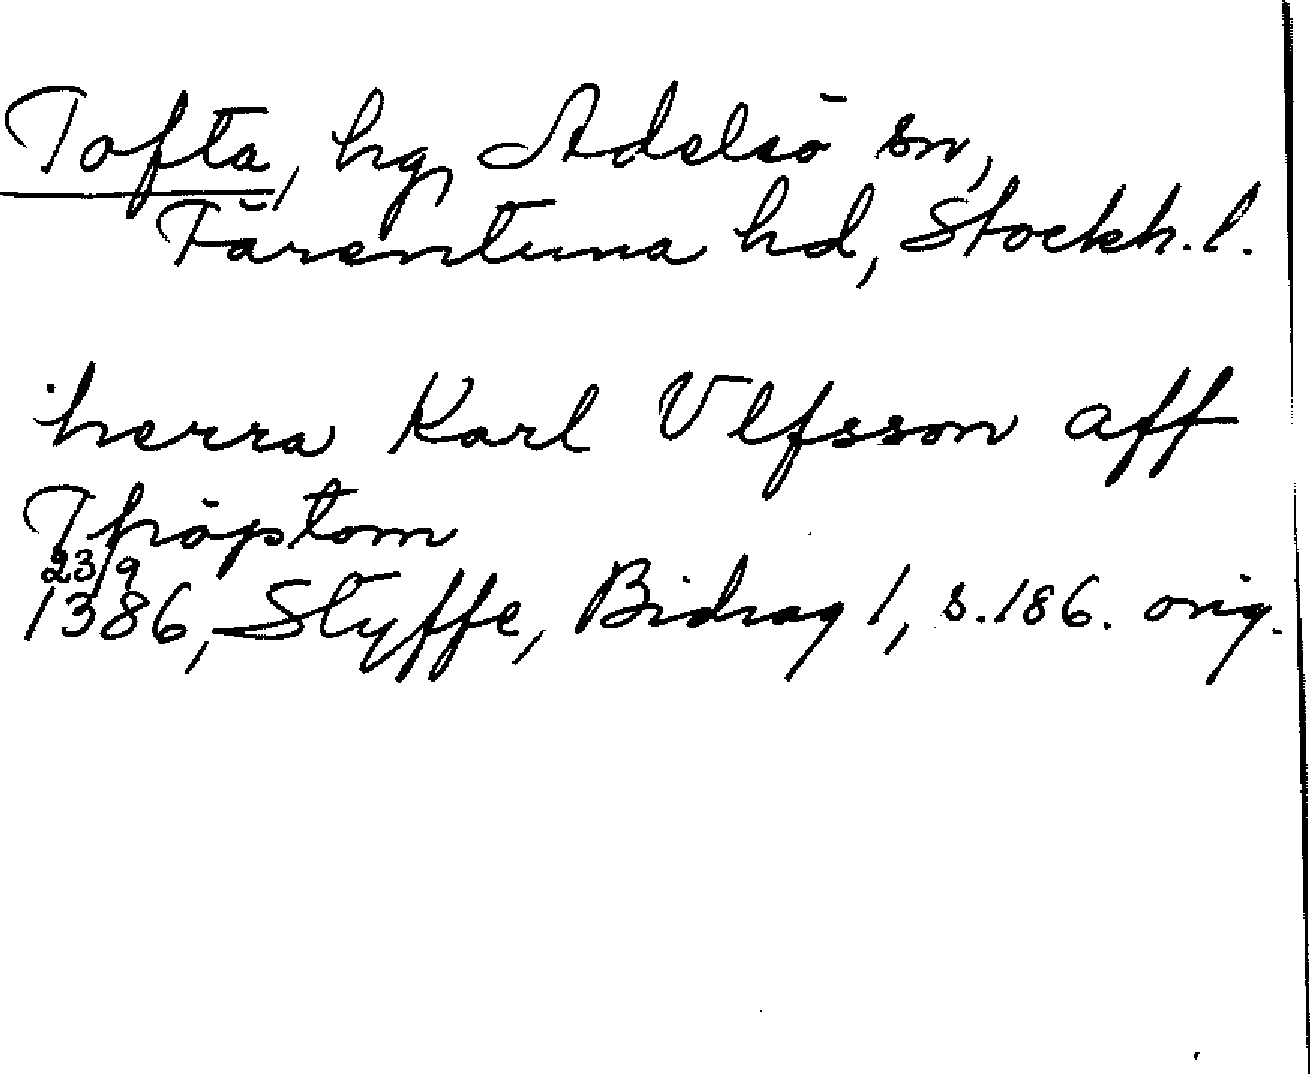 Tofta, hg, Adelsö sn,
Färentuna hd, Stockh. l.
herra Karl Vlfsson aff
Thöptom
23/9
1386, Styffe, Bidrag 1, s. 186. orig.